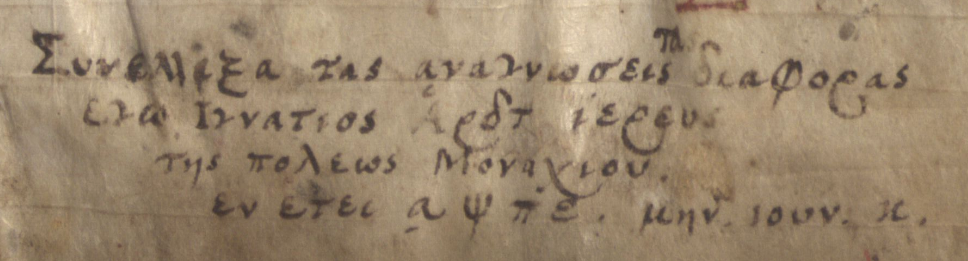 Συνελλεξα τας αναγνωσεις τα διαφορας
εγω Ιγνατιος Αρδτ ιερευς
της πολεως Μοναχιου.
εν ετει α ψ π ε. μην. ιουν. κ.